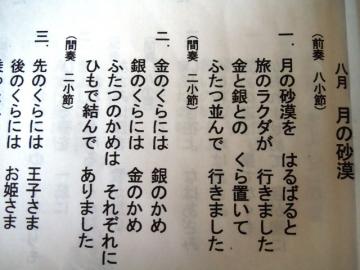 八月　月の砂漠
（前奏　八小節）
一．月の砂漠を　はるばると
旅のラクダが　行きました
金と銀との　くら置いて
ふたつ並んで　行きました
（間奏　二小節）
二．金のくらには　銀のかめ
銀のくらには　金のかめ
ふたつのかめは　それぞれに
ひもで結んで　ありました
（間奏　二小節）
三．先のくらには　王子さま
後のくらには　お姫さま